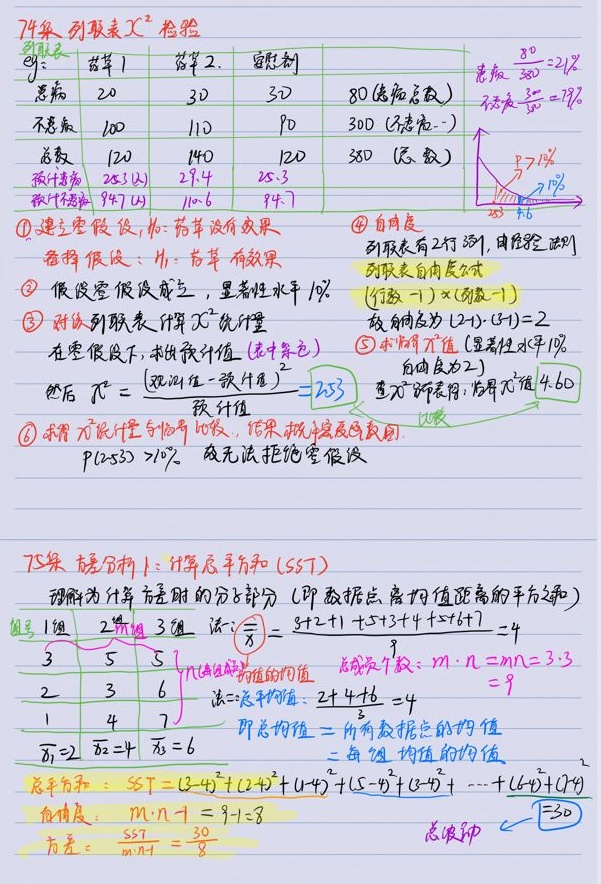 74条 列联表X² 检验
列联表
eg: 药草1 药草2. 安慰剂
患病 20 30 30 80(患病总数)
不患病 100 110 90 300 (不患病…)
总数 120 140 120 380 (总数)
预计患病 25.3(人) 29.4 25.3
预计不患病 94.7(人) 110.6 94.7
患病 80/380 =21%
不患病 300/380 =79%
P>10%
10%
2.53 4.6
① 建立零假设, H₀: 药草没有效果
备择假设: H₁: 药草 有效果
② 假设零假设成立, 显著性水平 10%
③ 对该列联表计算X²统计量
在零假设下, 求出预计值 (表中紫色)
然后 X² = (观测值-预计值)²/预计值 =2.53
④ 自由度
列联表有2行3列, 由经验法则
列联表自由度公式
(行数-1)×(列数-1)
故自由度为 (2-1)·(3-1)=2
⑤ 求临界X²值 (显著性水平10%
自由度为2)
查X²分布表得, 临界X²值 4.60
比较
⑥ 求得X²统计量与临界比较, 结果概率密度函数图.
P(2.53) >10% 故无法拒绝零假设
75条 方差分析1: 计算总平方和 (SST)
理解为计算方差时的分子部分 (即数据点离均值距离的平方之和)
组号 1组 2组 3组
m组
3 5 5
2 3 6
1 4 7
x̄₁=2 x̄₂=4 x̄₃=6
法一: x̿ = 3+2+1+5+3+4+5+6+7/9 =4
均值的均值
总成员个数: m·n =mn=3·3
=9
法二:总平均值: 2+4+6/3 =4
即总均值 = 所有数据点的均值
= 每组 均值的均值
总平方和: SST=(3-4)²+(2-4)²+(1-4)²+(5-4)²+(3-4)²+ … +(6-4)²+(7-4)²
=30
自由度: m·n-1 = 9-1=8
方差: SST/m·n-1 = 30/8
总波动